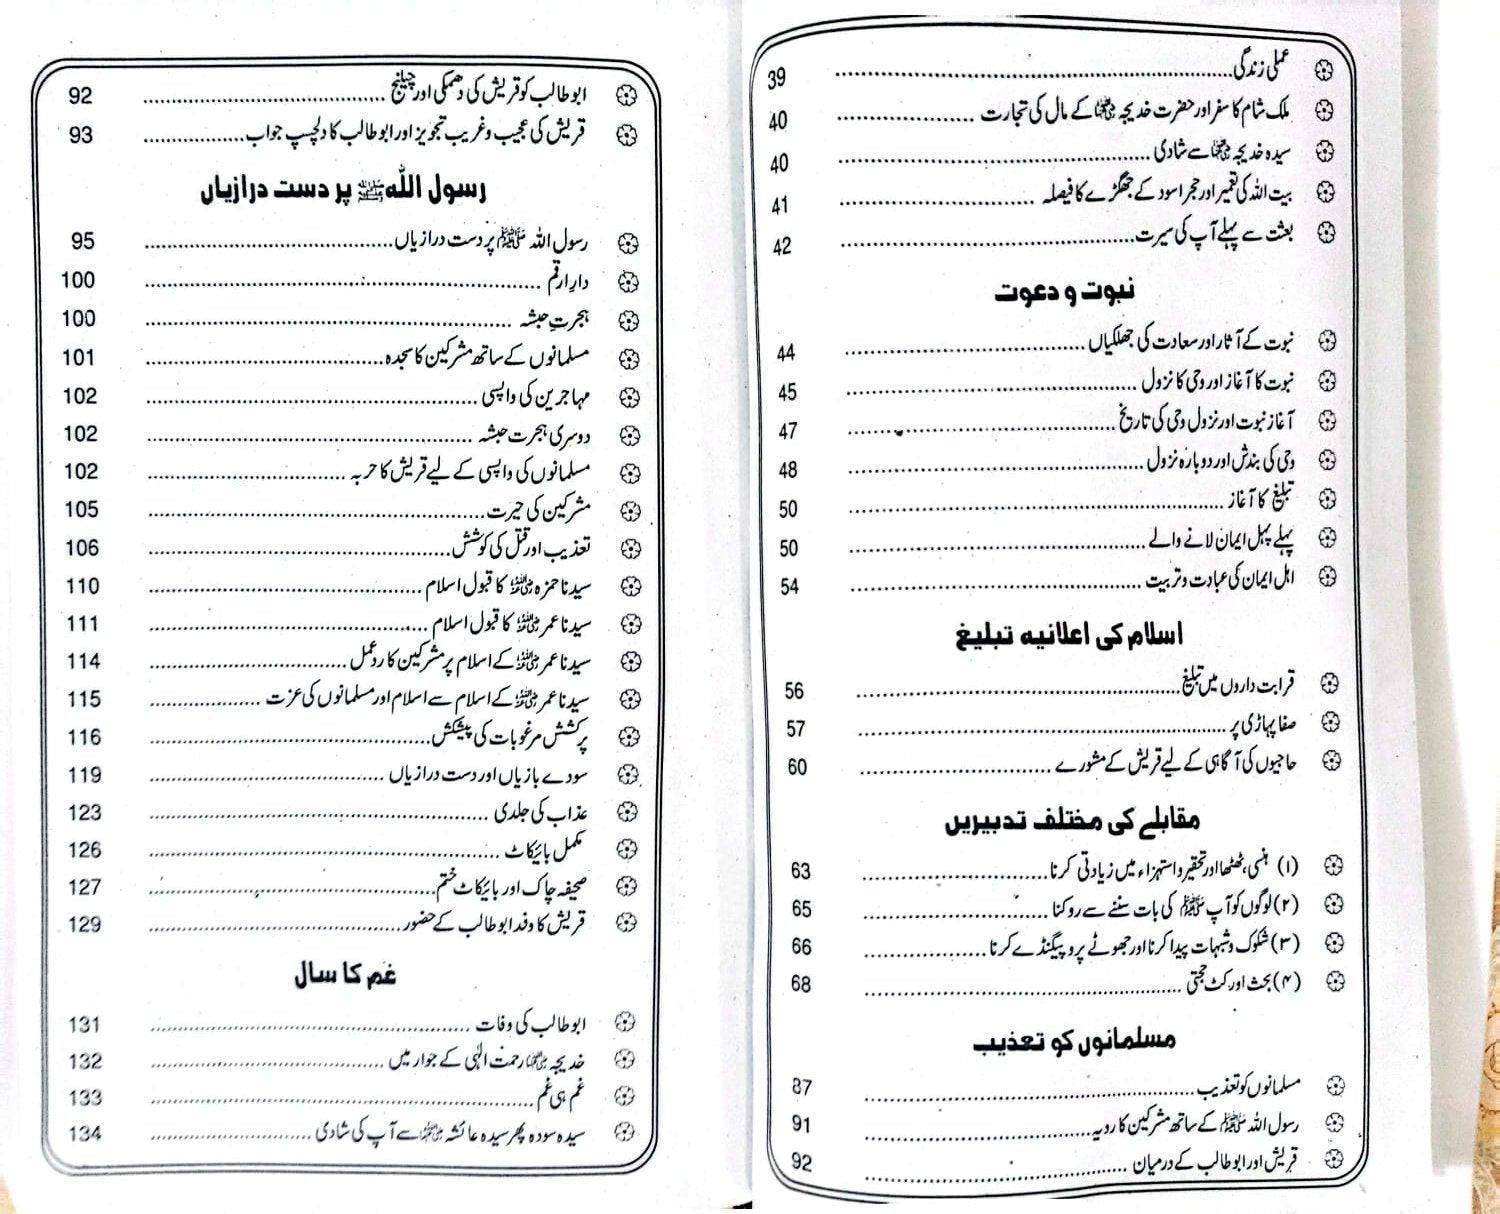 عملی زندگی ........ 39
ملک شام کا سفر اور حضرت خدیجہ رضی اللہ عنہا کے مال کی تجارت ........ 40
سیدہ خدیجہ رضی اللہ عنہا سے شادی ........ 40
بیت اللہ کی تعمیر اور حجر اسود کے جھگڑے کا فیصلہ ........ 41
بعثت سے پہلے آپ کی سیرت ........ 42
نبوت و دعوت
نبوت کے آثار اور سعادت کی جھلکیاں ........ 44
نبوت کا آغاز اور وحی کا نزول ........ 45
آغاز نبوت اور نزول وحی کی تاریخ ........ 47
وحی کی بندش اور دوبارہ نزول ........ 48
تبلیغ کا آغاز ........ 50
پہلے پہل ایمان لانے والے ........ 50
اہل ایمان کی عبادت و تربیت ........ 54
اسلام کی اعلانیہ تبلیغ
قرابت داروں میں تبلیغ ........ 56
صفا پہاڑی پر ........ 57
حاجیوں کی آگاہی کے لیے قریش کے مشورے ........ 60
مقابلے کی مختلف تدبیریں
(۱) ہنسی، ٹھٹھا اور تحقیر و استہزاء میں زیادتی کرنا ........ 63
(۲) لوگوں کو آپ ﷺ کی بات سننے سے روکنا ........ 65
(۳) شکوک و شبہات پیدا کرنا اور جھوٹے پروپیگنڈے کرنا ........ 66
(۴) بحث اور کٹ حجتی ........ 68
مسلمانوں کو تعذیب
مسلمانوں کو تعذیب ........ 87
رسول اللہ ﷺ کے ساتھ مشرکین کا رویہ ........ 91
قریش اور ابوطالب کے درمیان ........ 92
ابوطالب کو قریش کی دھمکی اور چیلنج ........ 92
قریش کی عجیب و غریب تجویز اور ابوطالب کا دلچسپ جواب ........ 93
رسول اللہ ﷺ پر دست درازیاں
رسول اللہ ﷺ پر دست درازیاں ........ 95
دارِ ارقم ........ 100
ہجرتِ حبشہ ........ 100
مسلمانوں کے ساتھ مشرکین کا سجدہ ........ 101
مہاجرین کی واپسی ........ 102
دوسری ہجرت حبشہ ........ 102
مسلمانوں کی واپسی کے لیے قریش کا حربہ ........ 102
مشرکین کی حیرت ........ 105
تعذیب اور قتل کی کوشش ........ 106
سیدنا حمزہ رضی اللہ عنہ کا قبول اسلام ........ 110
سیدنا عمر رضی اللہ عنہ کا قبول اسلام ........ 111
سیدنا عمر رضی اللہ عنہ کے اسلام پر مشرکین کا ردعمل ........ 114
سیدنا عمر رضی اللہ عنہ کے اسلام سے اسلام اور مسلمانوں کی عزت ........ 115
پرکشش مرغوبات کی پیشکش ........ 116
سودے بازیاں اور دست درازیاں ........ 119
عذاب کی جلدی ........ 123
مکمل بائیکاٹ ........ 126
صحیفہ چاک اور بائیکاٹ ختم ........ 127
قریش کا وفد ابوطالب کے حضور ........ 129
غم کا سال
ابوطالب کی وفات ........ 131
خدیجہ رضی اللہ عنہا رحمت الٰہی کے جوار میں ........ 132
غم ہی غم ........ 133
سیدہ سودہ پھر سیدہ عائشہ رضی اللہ عنہا سے آپ کی شادی ........ 134